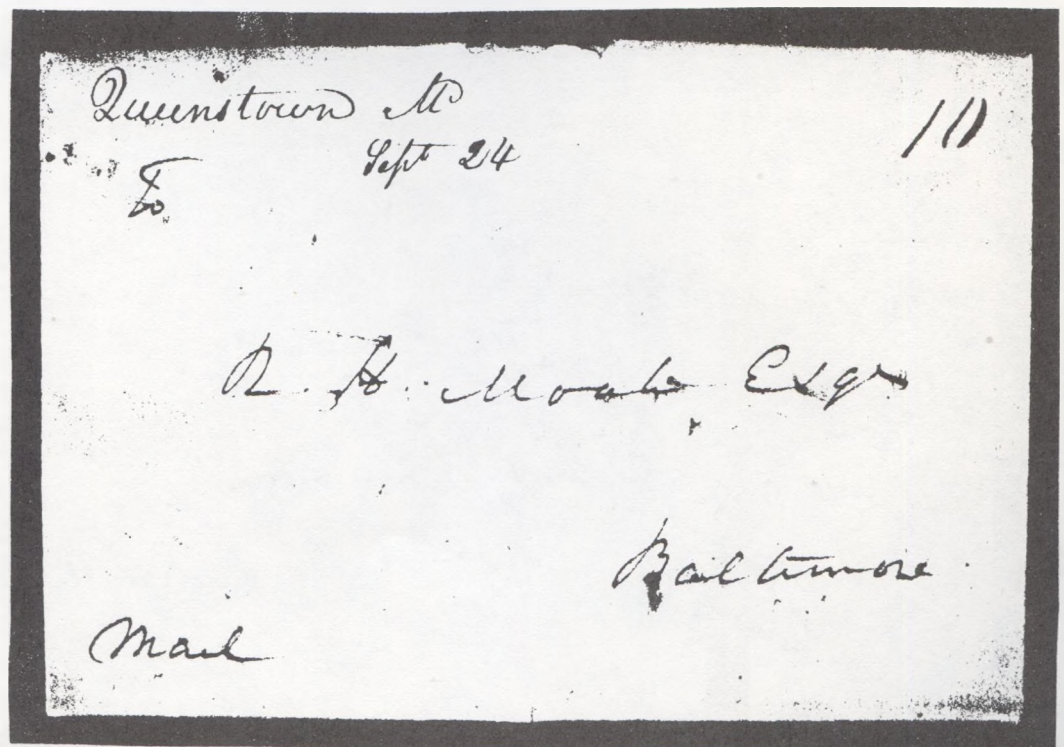 Queenstown Md 10
Sept 24
To
R. H. Moale Esqr
Bailtimore
Mail